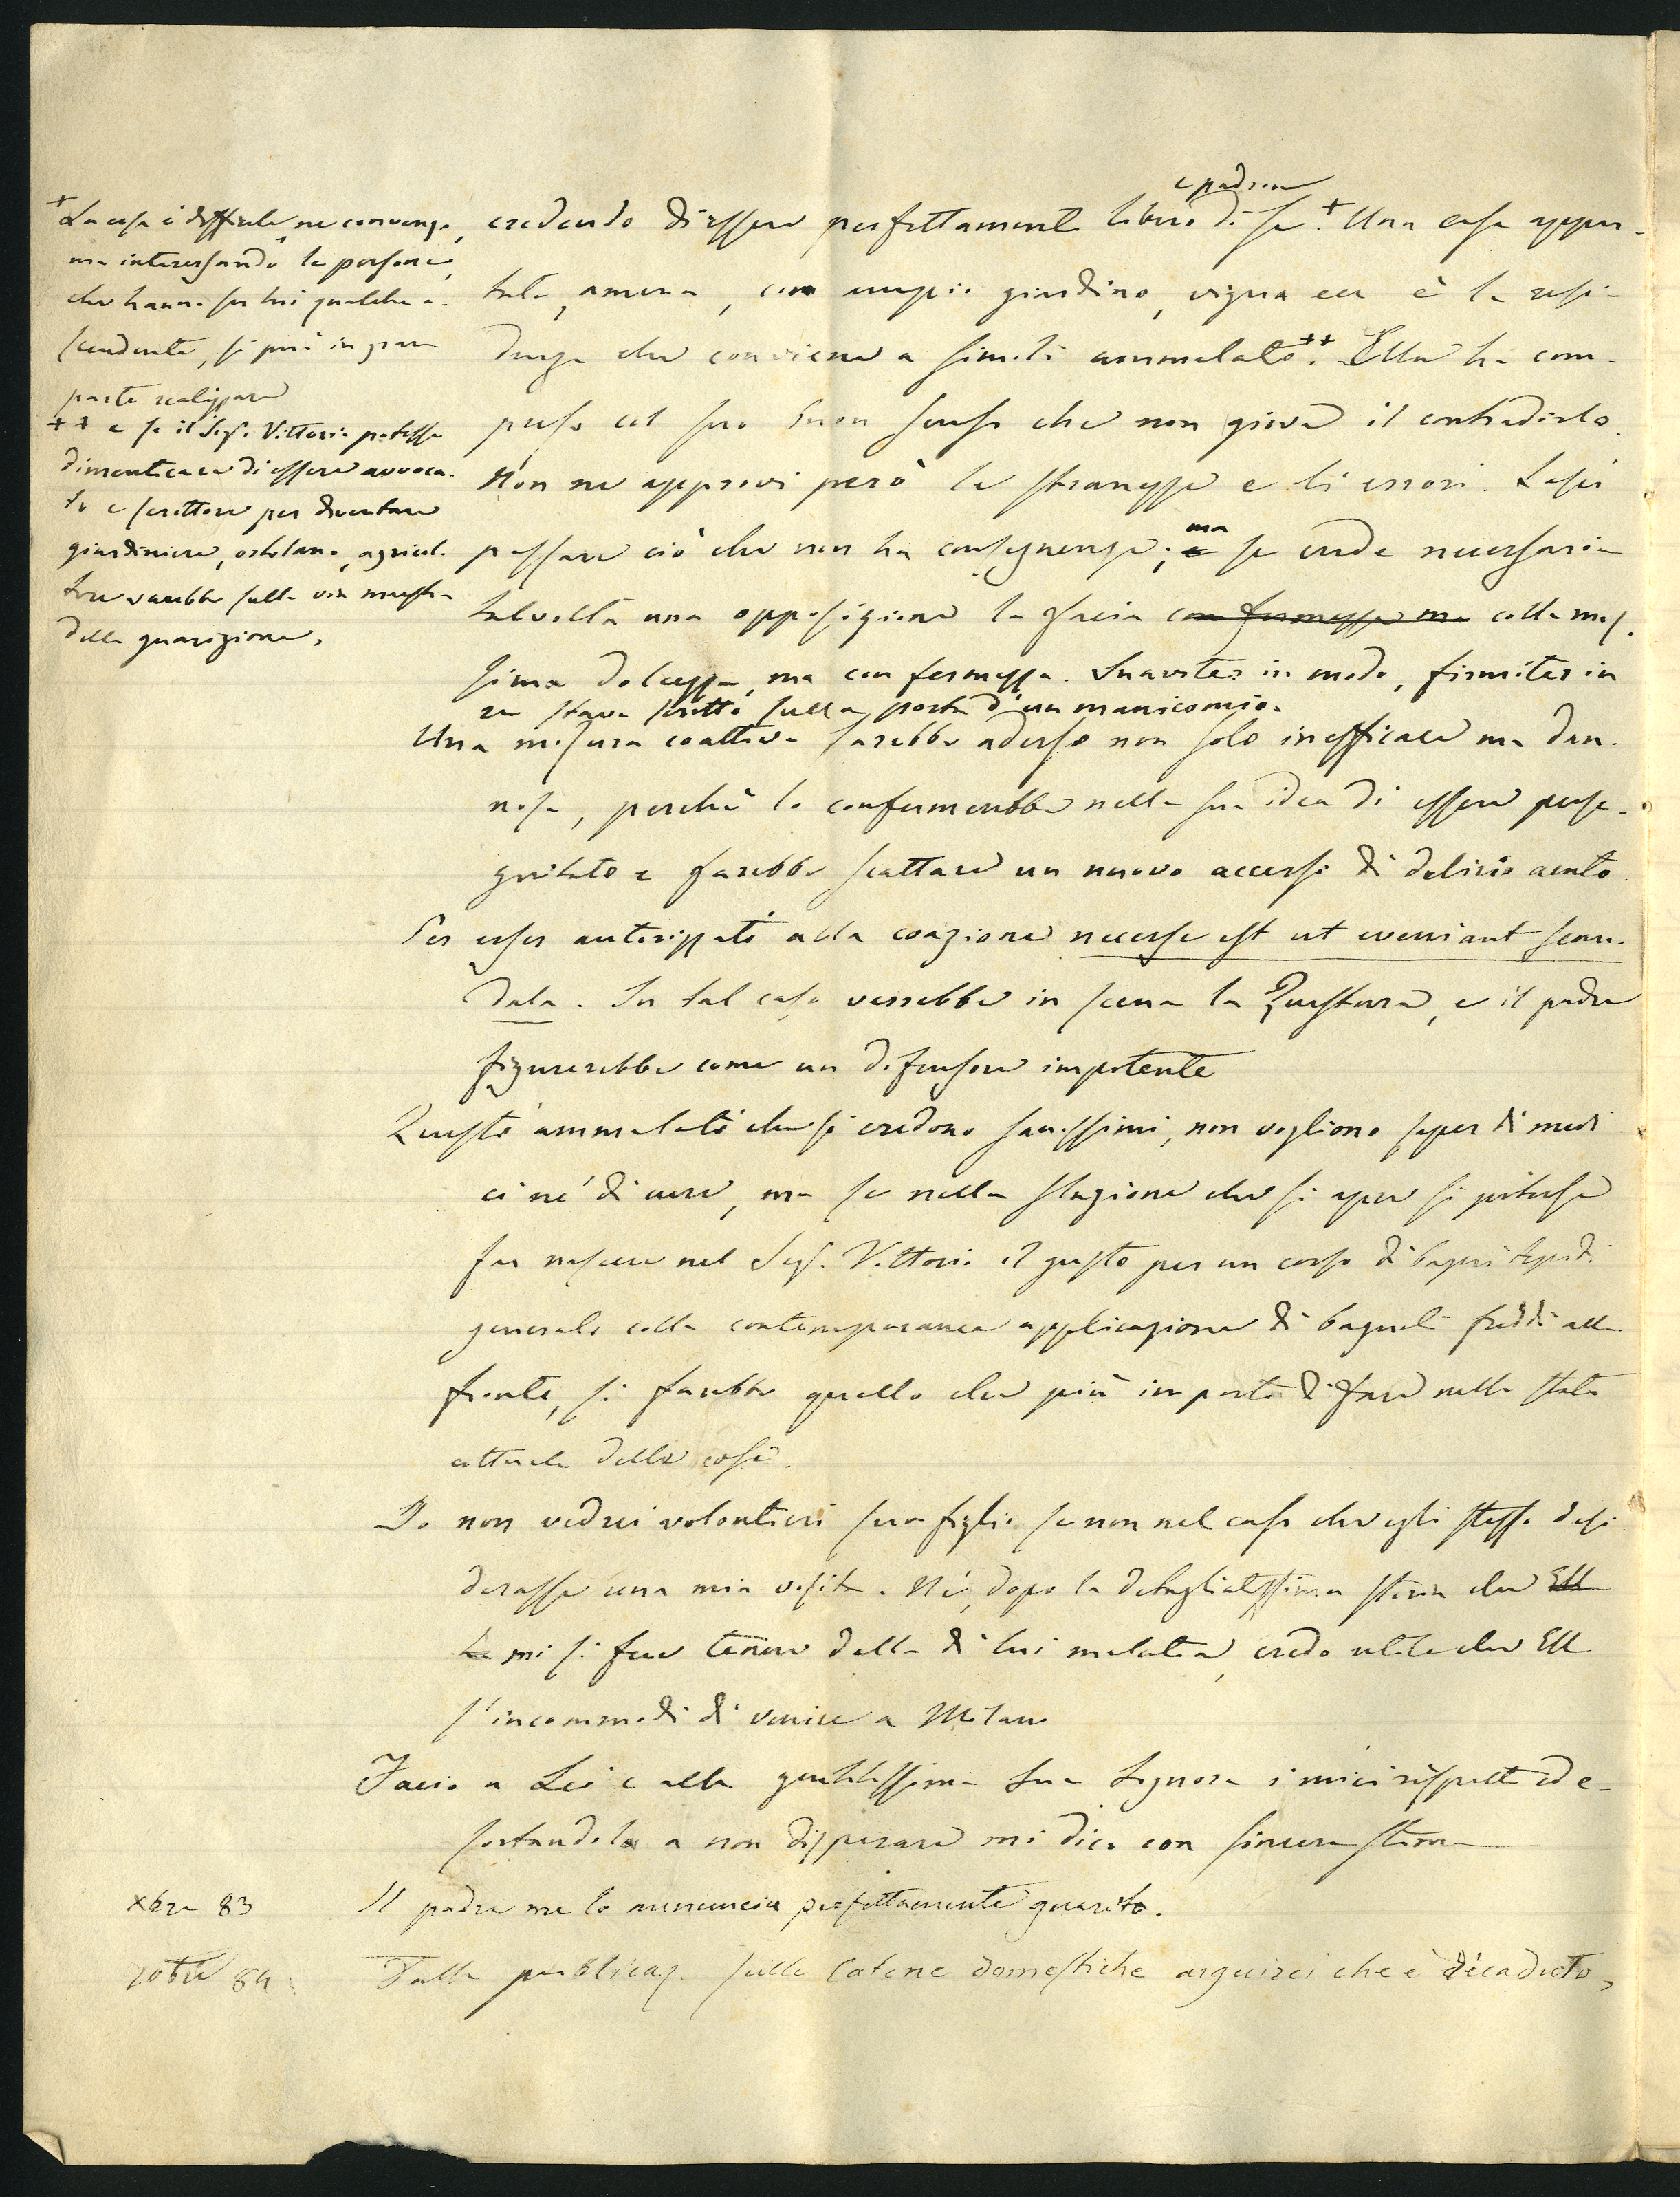 e padrone
credendo di essere perfettamente libero di se +. Una casa appar-
tata, amena, con ampio giardino, vigna ecc è la resi-
denza che conviene a simili ammalati ++. Ella ha com-
preso col suo buon senso che non giova il contradirlo.
Non ne approvi però le stranezze e li errori. Lasci
passare ciò che non ha conseguenze; e ma se crede necessaria
talvolta una opposizione la faccia con fermezza ma colla mas-
sima dolcezza, ma con fermezza. Suaviter in modo, firmiter in
re stava scritto sulla porta d'un manicomio.
Una misura coattiva sarebbe adesso non solo inefficace ma dan-
nosa, perchè lo confermerebbe nella sua idea di essere perse-
guitato e farebbe scattare un nuovo accesso di delirio acuto.
Per esser autorizzati alla coazione necesse est ut eveniant scan-
dala. In tal caso verrebbe in scena la Questura, e il padre
figurerebbe come un difensore impotente
Questi ammalati che si credono sanissimi, non vogliono saper di medi-
ci nè di cure, ma se nella stagione che si apre si potesse
far nascere nel Sigr. Vittorio il gusto per un corso di bagni tepidi
generali colla contemporanea applicazione di bagnoli freddi alla
fronte, si farebbe quello che più importa di fare nello stato
attuale delle cose.
Io non vedrei volontieri suo figlio se non nel caso che egli stesso desi-
derasse una mia visita. Nè, dopo la dettagliatissima storia che Ella
ha mi si fece tenere della di lui malattia, credo utile che Ella
s'incommodi di venire a Milano
Faccio a Lei e alla gentilissima Sua Signora i miei rispetti ed e-
sortandola a non disperare mi dico con sincera stima
xbre 83 Il padre me lo annuncia perfettamente guarito.
10bre 84. Dalla pubblicaz. sulle Catene domestiche arguirei che è ricaduto,
+ La cosa è difficile, ne convengo,
ma interessando le persone,
che hanno su lui qualche a-
scendente, si può in gran
parte realizzare
++ e se il Sigr. Vittorio potesse
dimenticare di essere avvoca-
to e scrittore per diventare
giardiniere, ortolano, agricol-
tore sarebbe sulla via maestra
della guarigione.